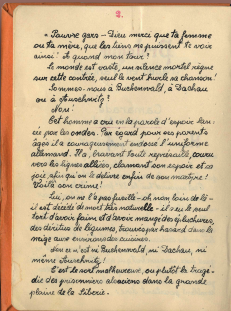 2.
« Pauvre gars – Dieu merci que ta femme
ou ta mère, que les tiens ne puissent te voir
ainsi ! À quand mon tour !
Le monde est vaste, un silence mortel règne
sur cette contrée, seul le vent hurle sa chanson !
Sommes-nous à Buchenwald, à Dachau
ou à Auschwitz ?
Non !
Cet homme a cru en la parole d'espoir lan-
cée par les ondes. Par égard pour ses parents
âgés il a courageusement endossé l'uniforme
allemand. Il a, bravant toute représaille, couru
vers les lignes alliées, clamant son espoir et sa
joie, afin qu'on le délivre enfin de son martyre !
Voilà son crime !
Lui, on ne l'a pas fusillé – oh non loin de là –
il est décédé de mort très naturelle – il a eu le seul
tort d'avoir faim et d'avoir mangé des épluchures,
des détritus de légumes, trouvés par hasard dans la
neige aux environs des cuisines.
Non ce n'est ni Buchenwald, ni Dachau, ni
même Auschwitz !
C'est le sort malheureux, ou plutôt la tragé-
die des prisonniers alsaciens dans la grande
plaine de la Sibérie.